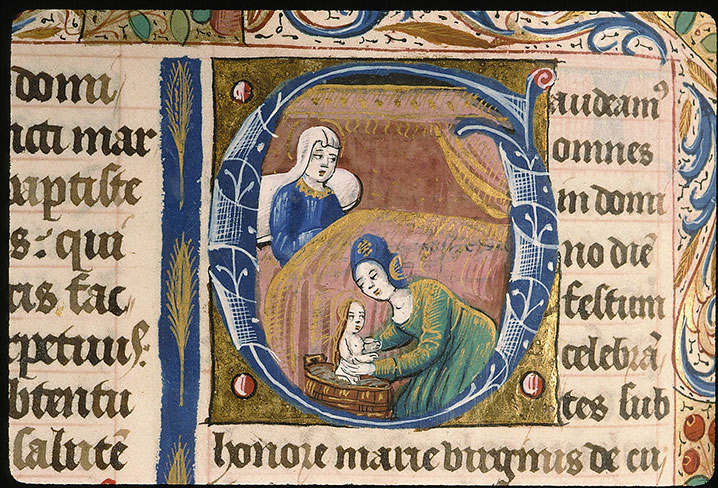 domi
ncti mar
baptiste
s: qui
cis fac
rpetuus:
btentu
salutē
Gaudeamꝰ
omnes
in domi
no diē
festum
celebrā
tes sub
honore marie virginis de cu